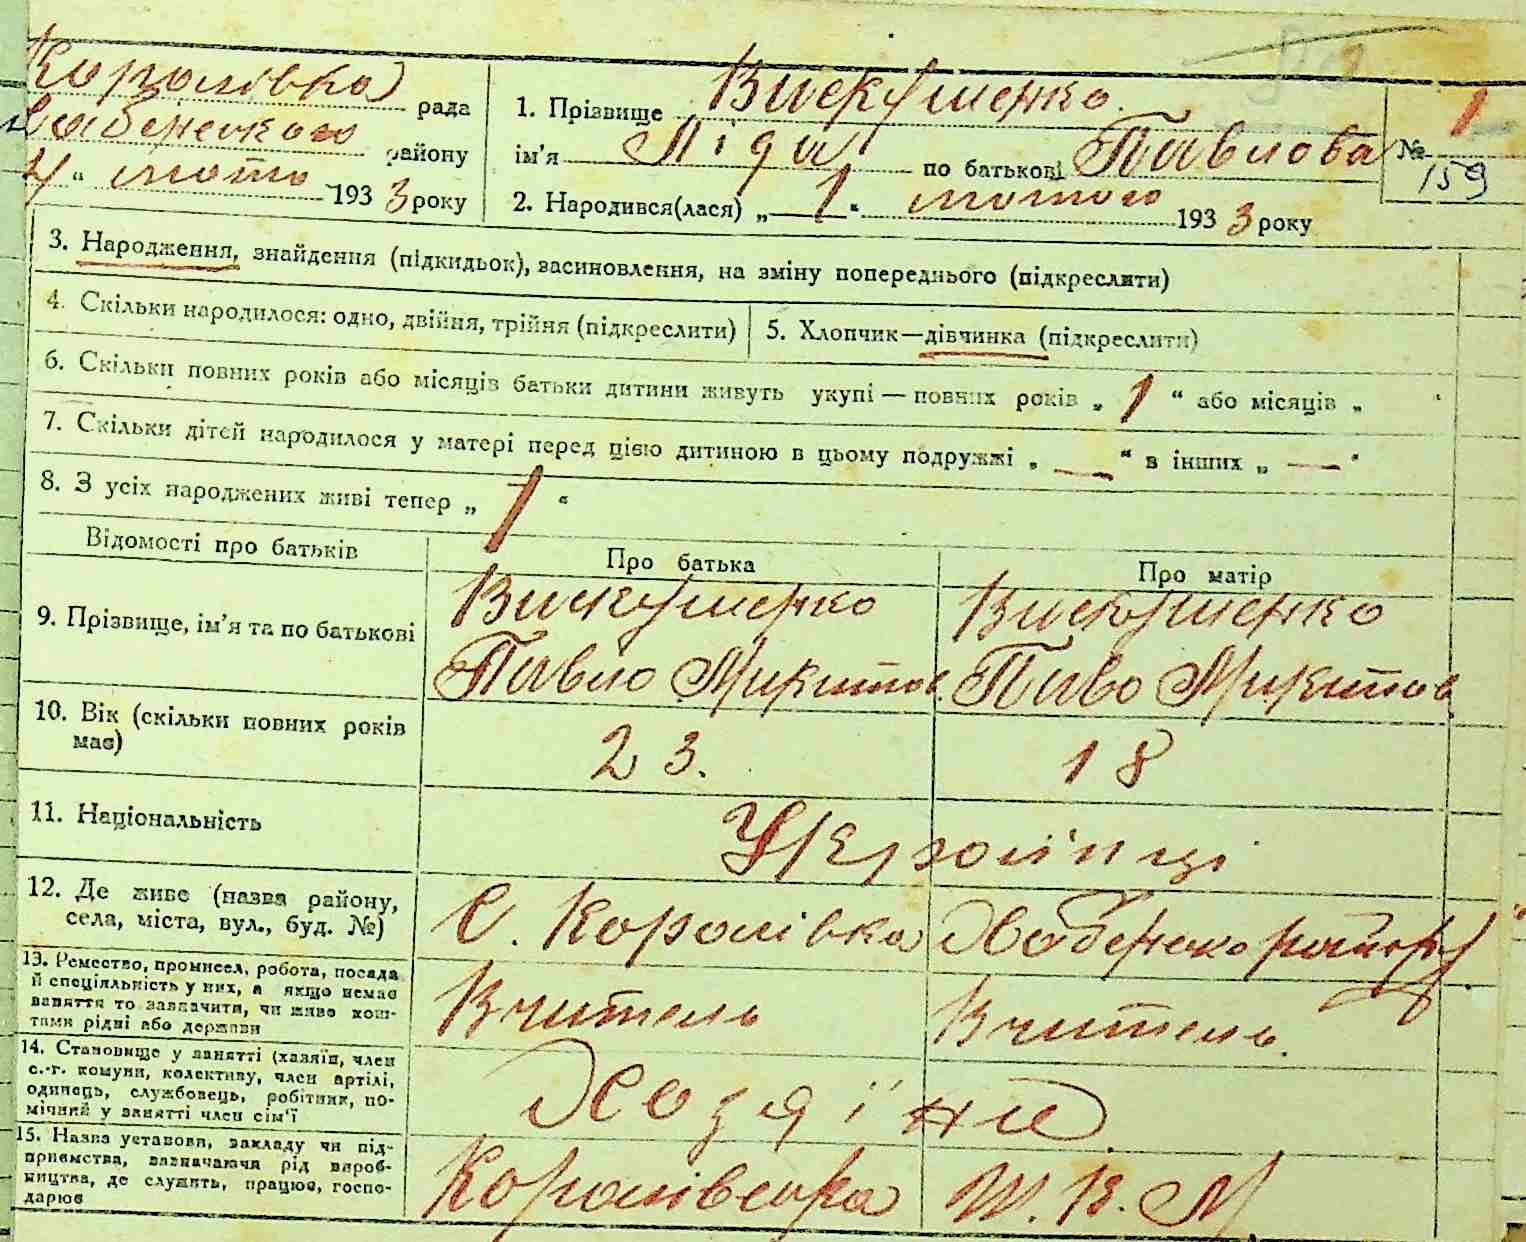 Королівка рада
Хабенського району
4 " лютого 1933 року
1. Прізвище Вискушенко.
ім'я Ліда по батькові Павлова
2. Народився(лася) „ 1 " лютого 1933 року
№ 1
159
3. Народження, знайдення (підкидьок), засиновлення, на зміну попереднього (підкреслити)
4. Скільки народилося: одно, двійня, трійня (підкреслити)
5. Хлопчик—дівчинка (підкреслити)
6. Скільки повних років або місяців батьки дитини живуть укупі — повних років „ 1 " або місяців „ "
7. Скільки дітей народилося у матері перед цією дитиною в цьому подружжі „ — " в інших „ — "
8. З усіх народжених живі тепер „ 1 "
Відомості про батьків
Про батька
Про матір
9. Прізвище, ім'я та по батькові
Вискушенко
Павло Микитов.
Вискушенко
Паво Микитов.
10. Вік (скільки повних років
має)
23.
18
11. Національність
Українці
12. Де живе (назва району,
села, міста, вул., буд. №)
С. Королівка Хабенско району.
13. Ремество, промисел, робота, посада
й спеціяльність у них, а якщо немає
заняття то зазначити, чи живе кош-
тами рідні або держави
Вчитель
Вчитель.
14. Становище у занятті (хазяїн, член
с.-г. комуни, колективу, член артілі,
одинець, службовець, робітник, по-
мічний у занятті член сім'ї
Хозяїни.
15. Назва установи, закладу чи під-
приємства, зазначаючи рід вироб-
ництва, де служить, працює, госпо-
дарює
Королівська Ш. К. М.